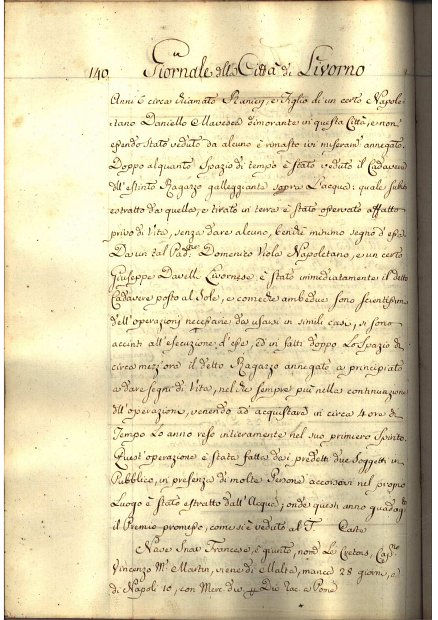 140 Giornale della Città di Livorno
Anni 6 circa chiamato Ranieri, e Figlio di un certo Napole-
itano Daniello dimorante in questa Città, e non
essendo stato veduto da alcuno è rimasto ivi miseram.e annegato.
Doppo alquanto Spazio di tempo è stato veduto il Cadavere
dell'estinto Ragazzo galleggiante sopra l'acqua: quale subito
estratto da quella, e tirato in terra è stato osservato affatto
privo di Vita, senza dare alcuno, benchè minimo segno d'essa
Da un tal Pad.ne Domenico Viola Napoletano, e un certo
Giuseppe Davelli Livornese è stato immediatamente il detto
Cadavere posto al Sole, e come che ambedue sono scientissimi
dell'operazioni necessarie da usarsi in simili casi, si sono
accinti all'esecuzione d'esse, ed in fatti doppo lo Spazio di
circa mezz'ora il detto Ragazzo annegato a principiato
a dare segni di Vita, nel che sempre più nella continuazione
dell'operazione, venendo ad acquistare in circa 4 ore di
Tempo lo anno reso intieramente nel suo primiero Spirito.
Quest'operazione è stata fatta dai predetti due Soggetti in
Pubblico, in presenza di molte Persone accorsevi nel proprio
Luogo è stato estratto dall'Acqua; onde questi anno guadag.to
il Premio promesso, come si è veduto al T. Carte
Nave Snau Francese, è giunto, nom.o Le Cretons, Cap.no
Vincenzo M.a Martin, viene di Malta, manca 28 giorni, e
di Napoli 10, con Merc. die